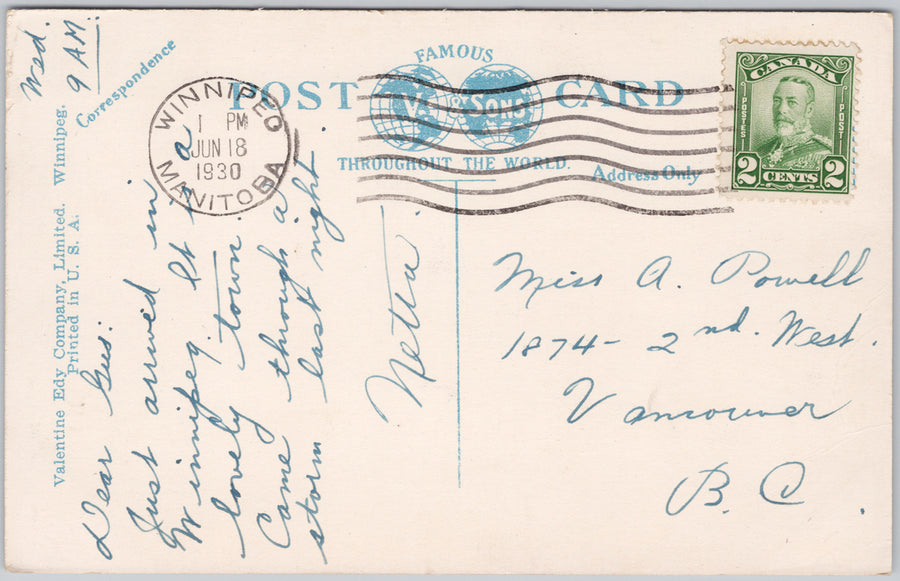 FAMOUS
POST CARD
& SONS
THROUGHOUT THE WORLD.
Correspondence
Address Only
Valentine Edy Company, Limited. Winnipeg.
Printed in U. S. A.
WINNIPEG
1 PM
JUN 18
1930
MANITOBA
CANADA
POSTES
POSTAGE
2 CENTS 2
Wed.
9 AM.
Dear Gus:
Just arrived in
Winnipeg. It's a
lovely town.
Came through a
storm last night
Netta
Miss A. Powell
1874 - 2nd. West.
Vancouver
B. C.